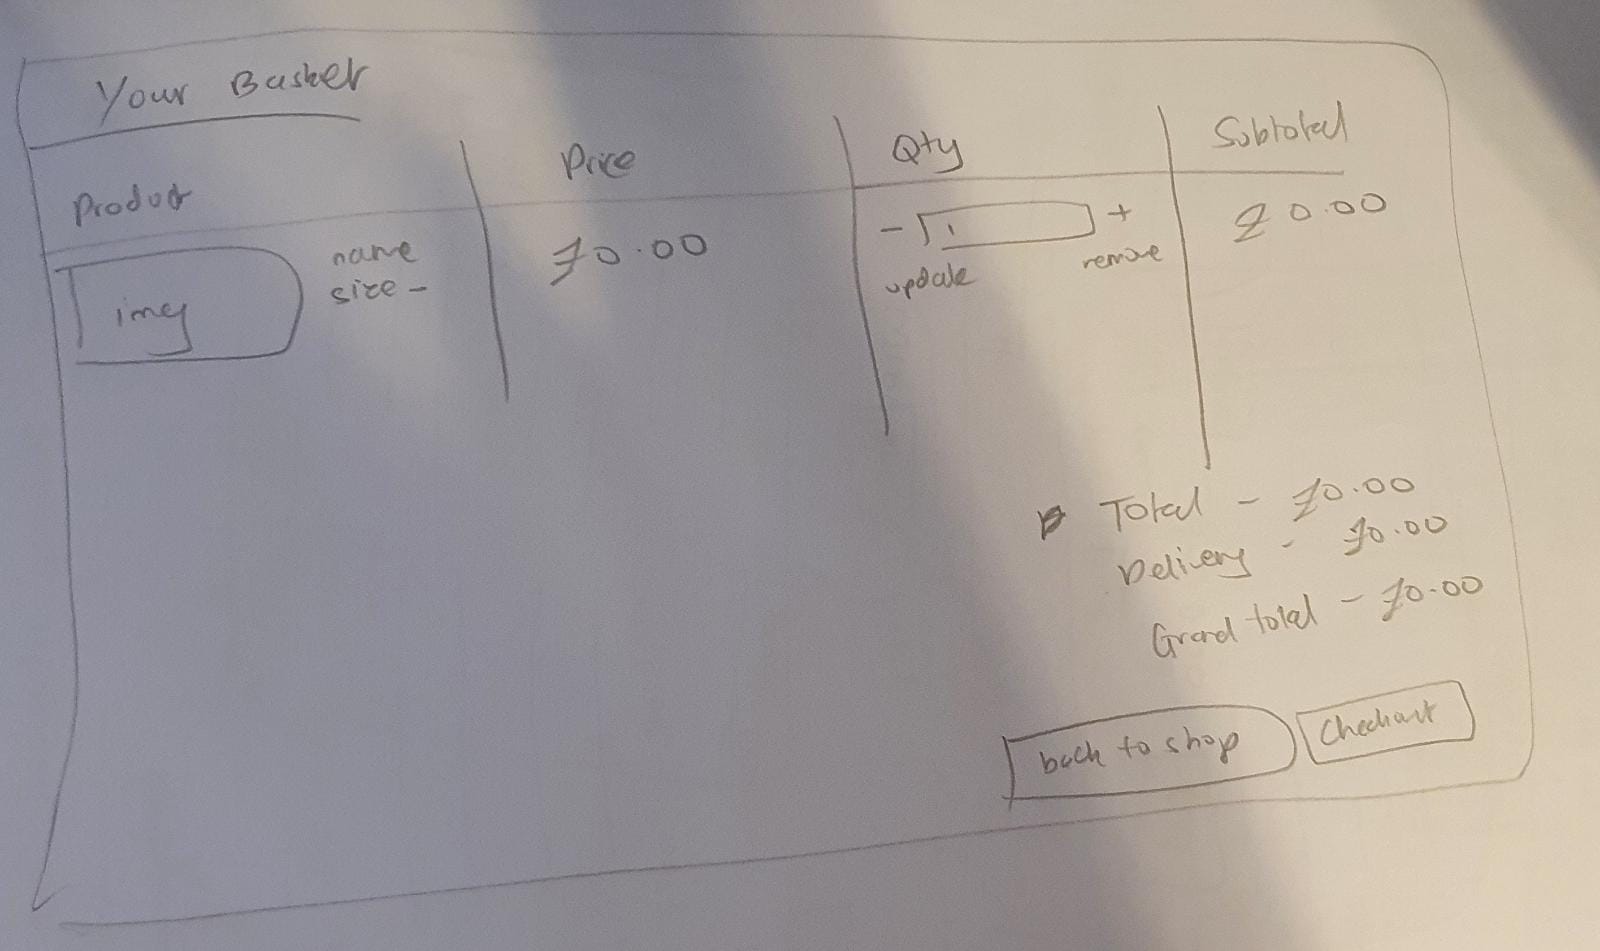 Your Basket
Product Price Qty Subtotal
img name £0.00 - 1 + £0.00
size - update remove
Total - £0.00
Delivery - £0.00
Grand total - £0.00
back to shop Checkout